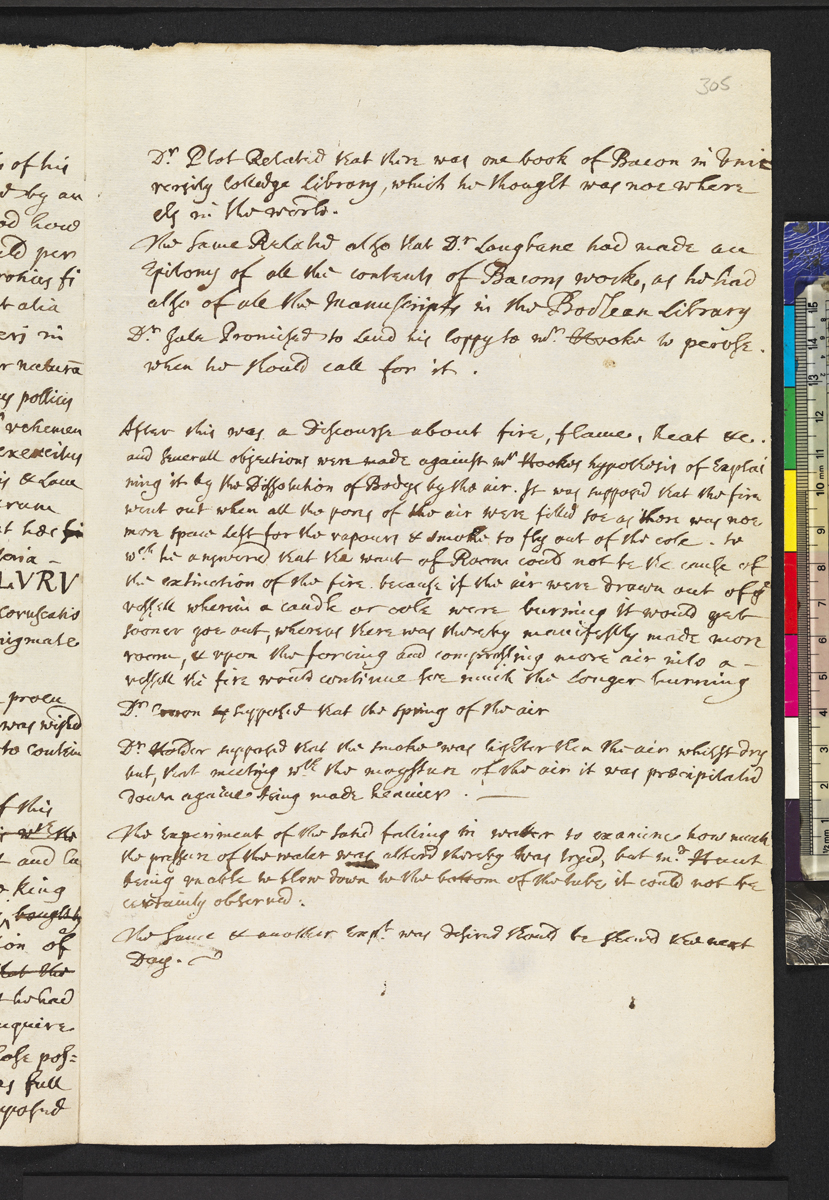 305
s of his
d by an
od how
uld per
t alia
ers in
r naturâ
ys pollicis
vehemen
exercitus
is & Laur
erum
t has
toria -
LVRV
coruscatio
nigmate
procu
was wishd
to contin
f this
t and
king
ion of
t he had
nquire
lose pos=
as full
pposed
Dr. Plot Related that there was one book of Bacon in Uni
versity Colledge Library, which he thought was noe where
els in the world.
The same Related also that Dr. Langbane had made an
Epitomy of all the contents of Bacons works, as he had
also of all the Manuscripts in the Bodlean Library
Dr. Gale Promised to Lend his Coppy to Mr. Hooke to peruse.
when he should call for it.
After this was a Discourse about fire, flame, heat &c.
and severall objections were made against Mr Hookes hypothesis of Explai
ning it by the Dissolution of Bodys by the air. It was supposed that the fire
went out when all the pores of the air were filled soe as there was noe
more space left for the vapours & smoke to fly out of the cole. to
wch he answered that the want of Room could not be the cause of
the extinction of the fire. because if the air were drawn out of ye
vessell wherein a candle or cole were burning it would yet
sooner goe out, whereas there was thereby manifestly made more
room, & upon the forcing and compressing more air into a -
vessell the fire would continue soe much the longer burning
Dr. Croon supposed that the spring of the air
Dr Holder supposed that the smoke was lighter then the air whilst dry
but, that meeting wth the moysture of the air it was præcipitated
down againe being made heavier. —
The Experiment of the sand falling in water to examine how much
the pressure of the water was altered thereby was tryed, but Mr. Hunt
being unable to blow down to the bottom of the tube it could not be
certainly observed.
The same & another Expt. was desired should be shewd the next
Day.